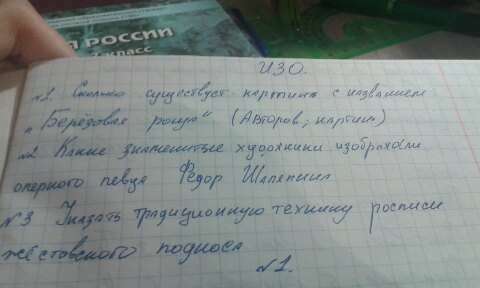 Я РОССИИ
7 класс
ИЗО.
№1. Сколько существует картина с названием
"Берёзовая роща" (Авторов, картин)
№2 Какие знаменитые художники изображали
оперного певца Федор Шаляпина
№3 Указать традиционную технику росписи
жёстовского подноса
№1.